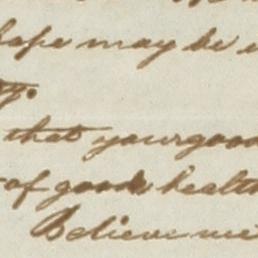 hope may be
that your good
of good health
Believe me